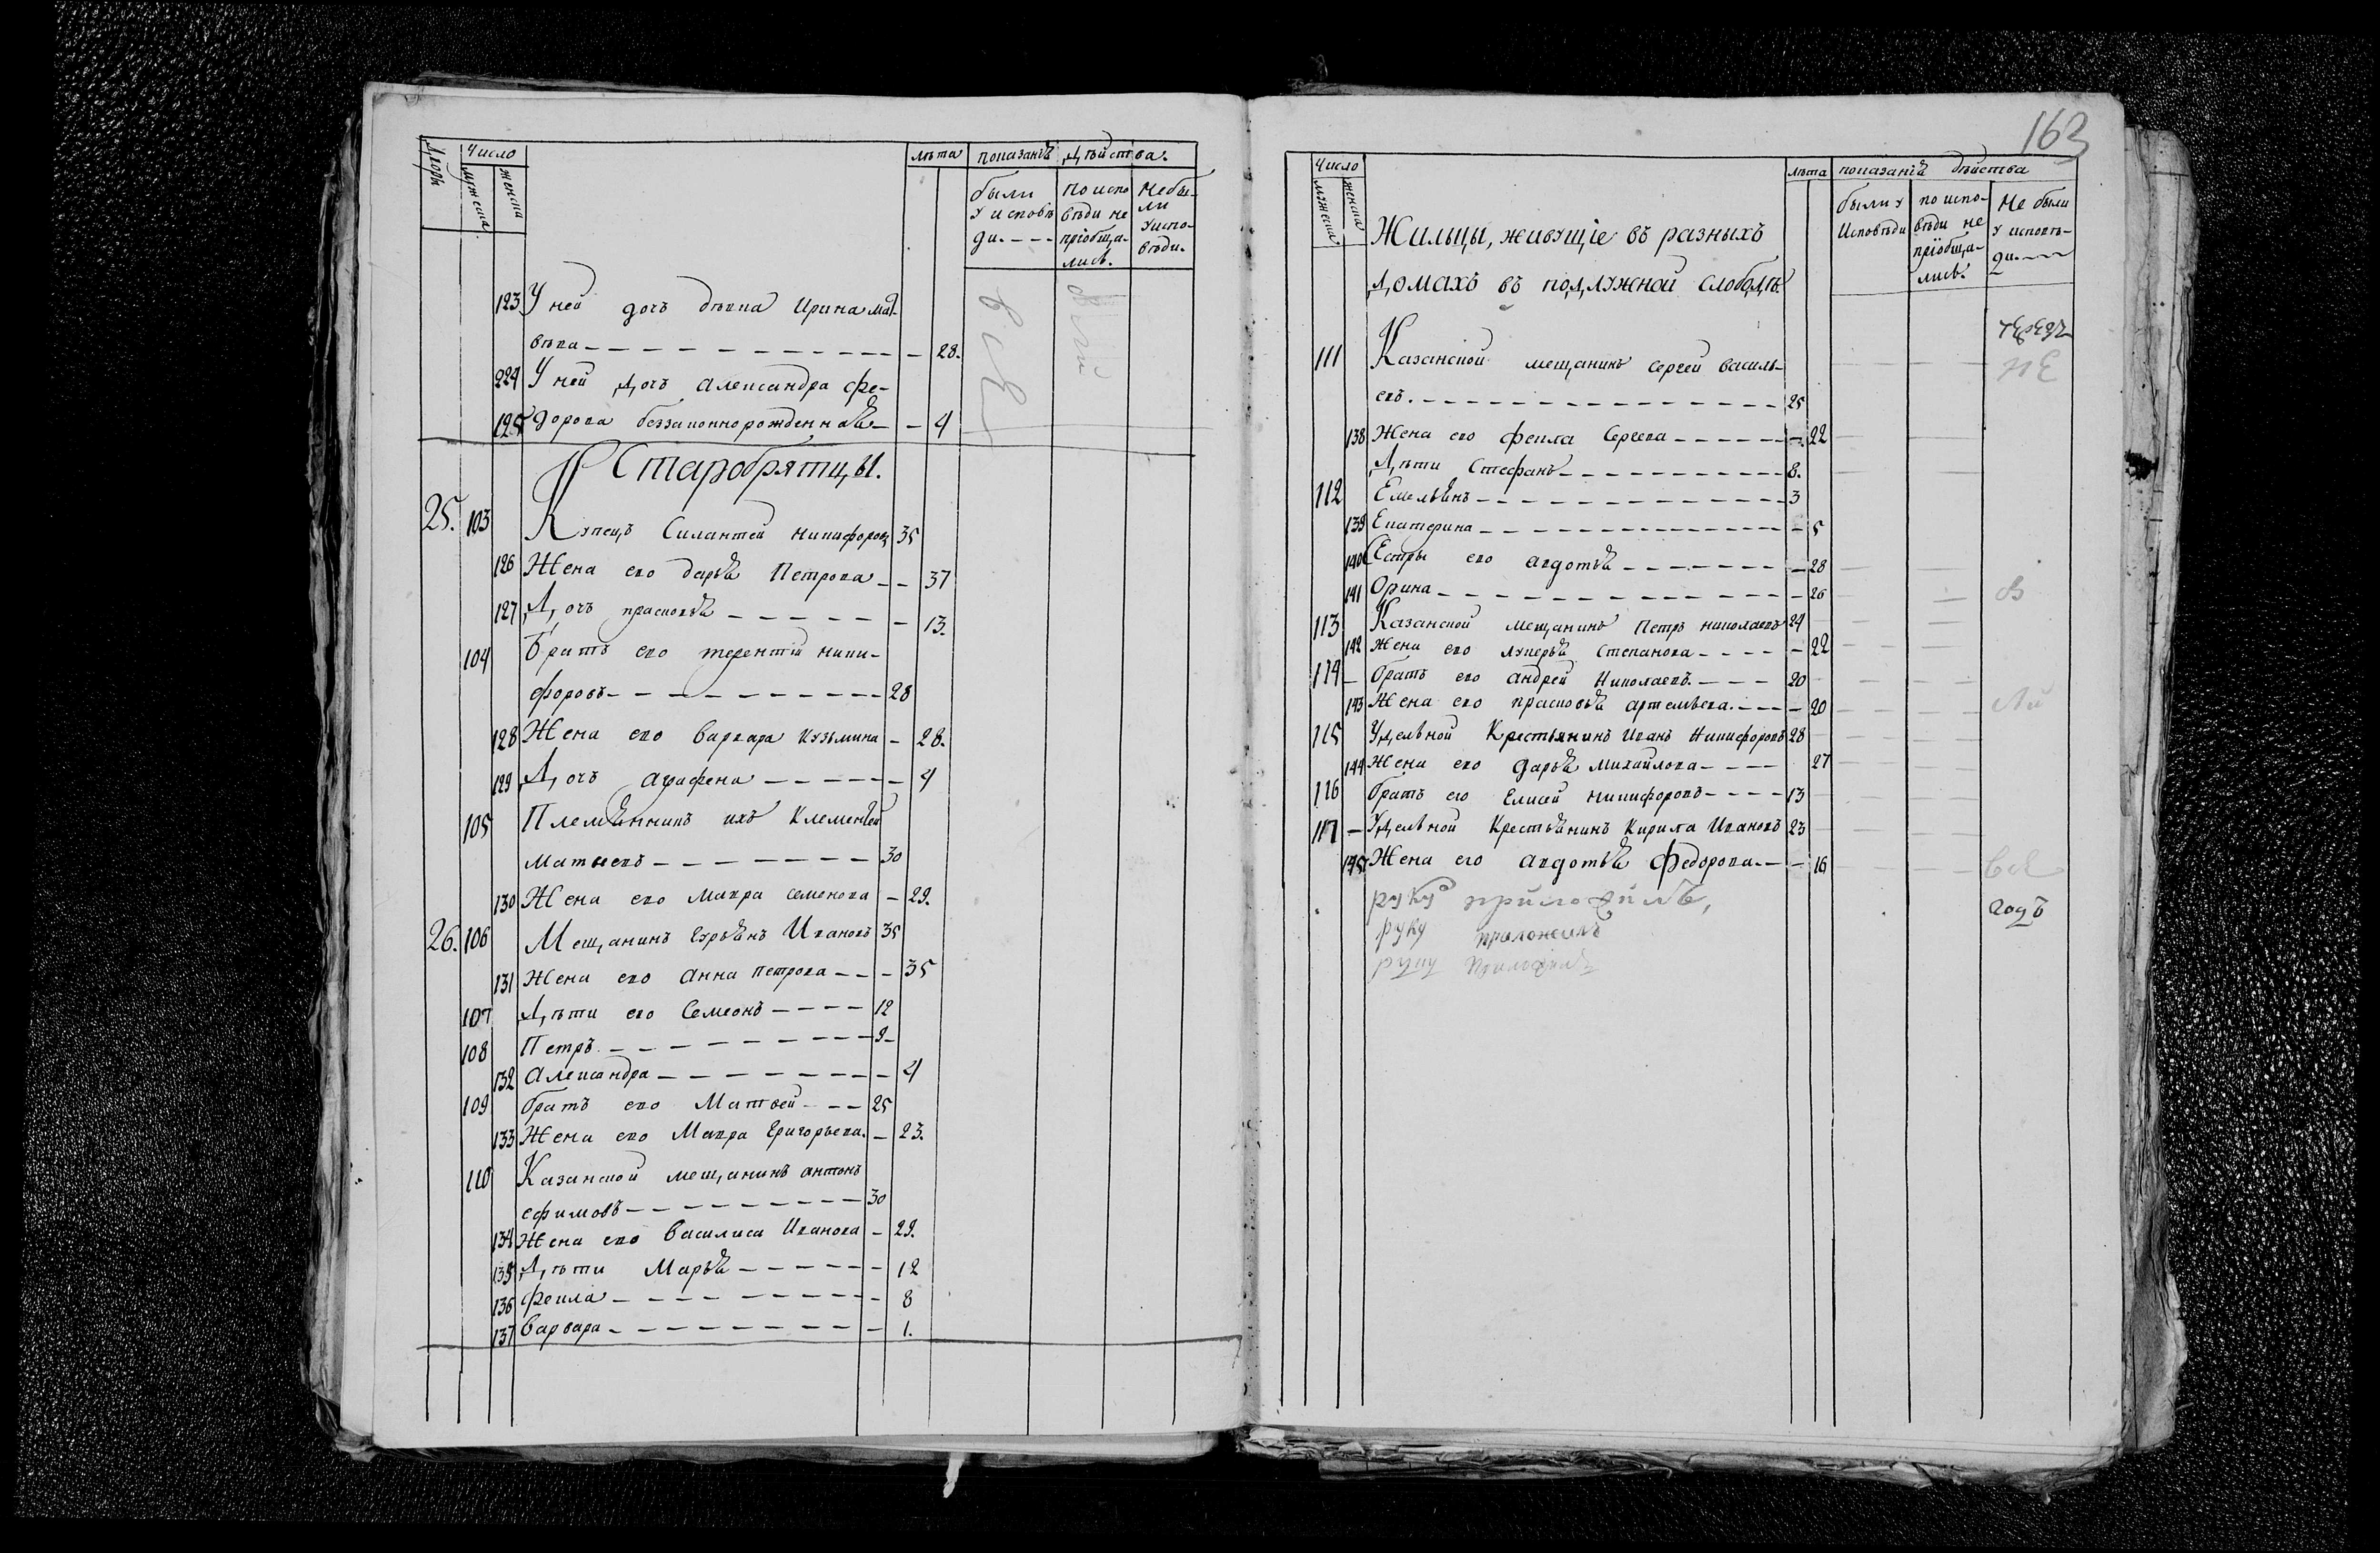 Дворы Число лѣта показанїѧ дѣйства.
мужеска женска были у исповѣди.--- По исповѣди не прїобщались. Не были у исповѣди.
123 У ней дочь дѣвка Ирина Мат-
вѣва 28.
224 У ней дочь Александра Фе-
125 дорова беззаконнорожденнаѧ 4
Старобрятцы.
25. 103 Купецъ Силантей Никифоровъ 35
126 Жена его Дарьѧ Петрова 37
127 Дочь прасковьѧ 13.
104 Братъ его терентїй Ники-
форовъ 28
128 Жена его Варвара Кузьмина 28.
129 Дочь аграфена 4
105 Племѧнникъ ихъ Клементей
Матвеевъ 30
130 Жена его Мавра Семенова 29.
26. 106 Мещанинъ Гурьѧнъ Ивановъ 35
131 Жена его Анна Петрова 35
107 Дѣти его Семеонъ 12
108 Петръ 9
132 Александра 4
109 братъ его Матвей 25
133 Жена его Мавра Григорьева. 23.
110 Казанской мещанинъ антонъ
ефимовъ 30
134 Жена его Василиса Иванова 29.
135 Дѣти Марьѧ 12
136 Фекла 8
137 Варвара 1.
163
Число лѣта показанїѧ дѣйства
мужеска женска были у Исповѣди по исповѣди не прїобщались. Не были у исповѣди.---
Жильцы, живущїе въ разныхъ
домахъ въ подлужной слободѣ.
111 Казанской мещанинъ Сергей Василь-
евъ. 25
138 Жена его Фекла Сергева 22
Дѣти Стефанъ 8.
112 Емельѧнъ 3
139 Екатерина 5
140 Сестры его авдотьѧ 28
141 Орина 26
113 Казанской мещанинъ Петръ Николаевъ 24
142 Жена его Лукерьѧ Степанова 22
114 братъ его андрей Николаевъ. 20
143 Жена его прасковьѧ артемьева. 20
115 Удельной Крестьянинъ Иванъ Никифоровъ 28
144 Жена его Дарьѧ Михайлова 27
116 братъ его Елисей Никифоровъ 13
117 Удельной Крестьѧнинъ Кирила Ивановъ 23
145 Жена его авдотьѧ Федорова. 16
годъ
руку приложилъ,
руку приложилъ
руку приложилъ